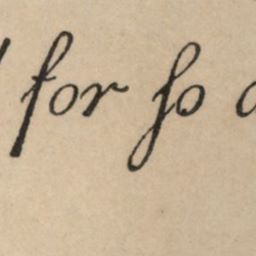 for so